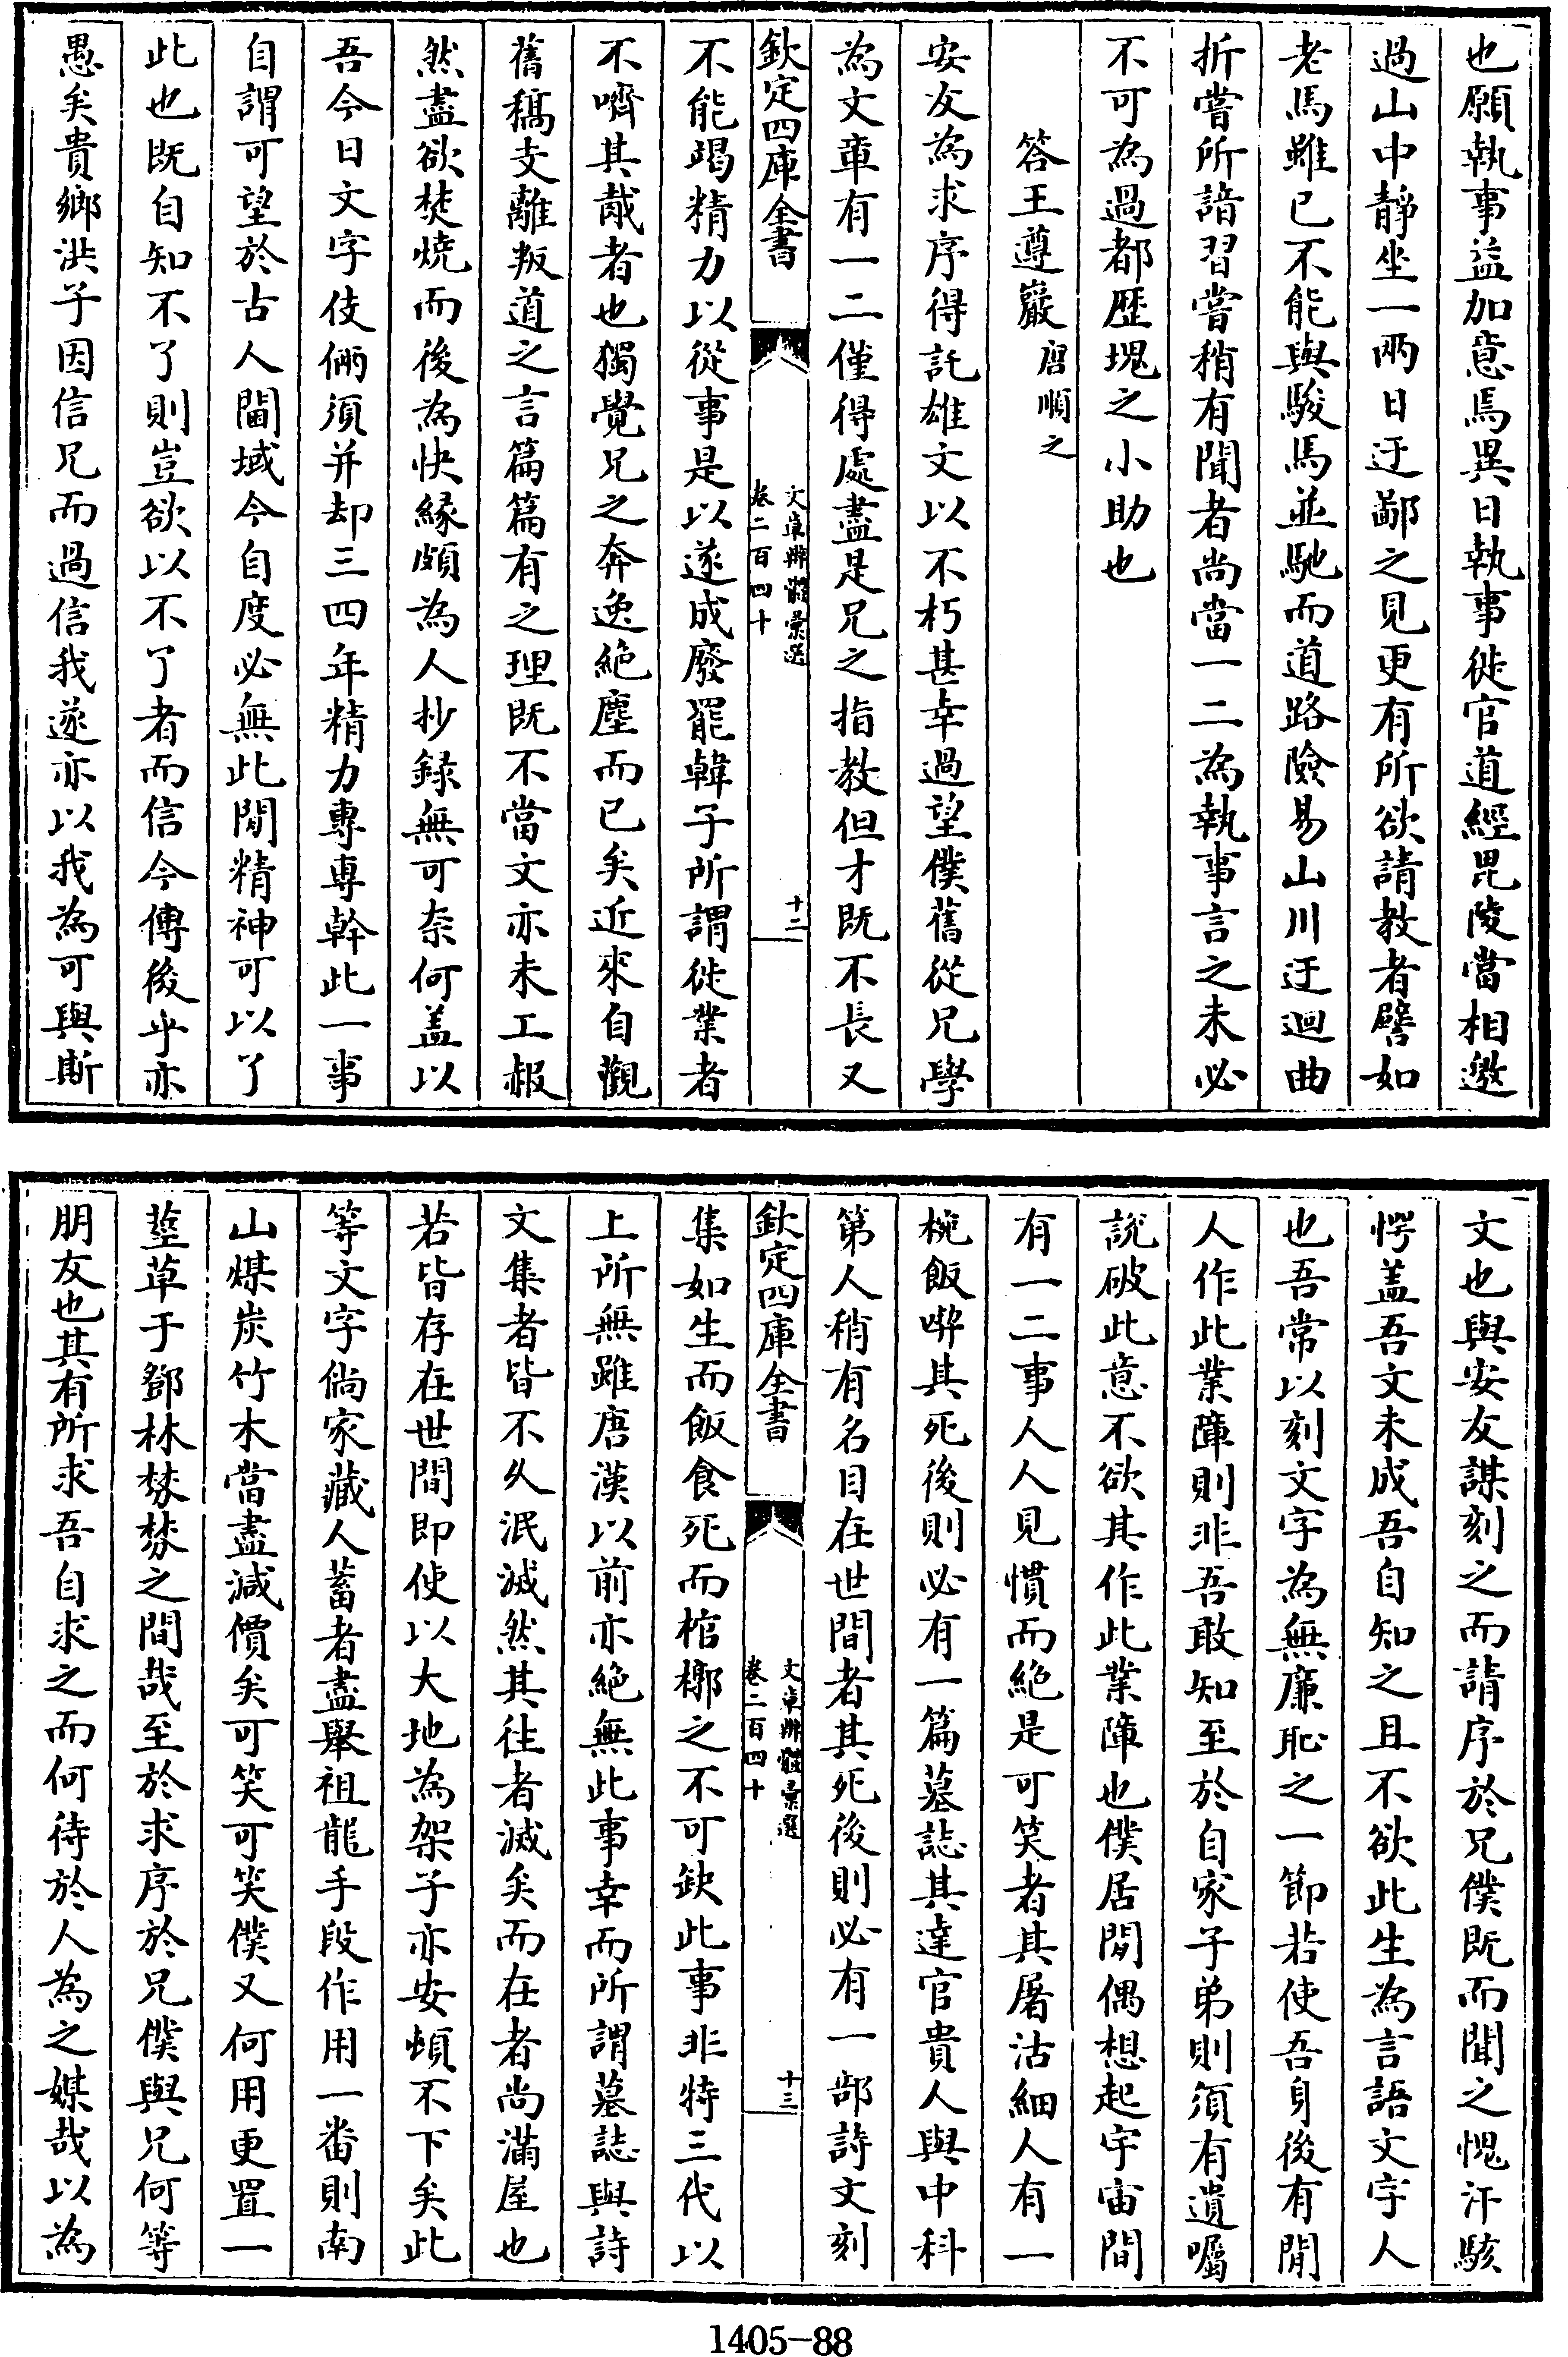 也願執事益加意焉異日執事徙官道經毘陵當相邀
過山中靜坐一兩日迂鄙之見更有所欲請教者譬如
老馬雖已不能與駿馬並馳而道路險易山川迂迴曲
折嘗所諳習嘗稍有聞者尚當一二為執事言之未必
不可為過都歴塊之小助也
答王遵巖 唐順之
安友為求序得託雄文以不朽甚幸過望僕舊從兄學
為文章有一二僅得處盡是兄之指教但才既不長又
欽定四庫全書
文章辨體彙選
卷二百四十
十二
不能竭精力以從事是以遂成廢罷韓子所謂徙業者
不嚌其胾者也獨覺兄之奔逸絶塵而已矣近來自觀
舊稿支離叛道之言篇篇有之理既不當文亦未工赧
然盡欲焚燒而後為快緣頗為人抄録無可奈何盖以
吾今日文字伎倆須并却三四年精力專專幹此一事
自謂可望於古人閫域今自度必無此閒精神可以了
此也既自知不了則豈欲以不了者而信今傳後乎亦
愚矣貴鄉洪子因信兄而過信我遂亦以我為可與斯
文也與安友謀刻之而請序於兄僕既而聞之愧汗駭
愕盖吾文未成吾自知之且不欲此生為言語文字人
也吾常以刻文字為無廉恥之一節若使吾身後有閒
人作此業障則非吾敢知至於自家子弟則須有遺囑
說破此意不欲其作此業障也僕居閒偶想起宇宙間
有一二事人人見慣而絶是可笑者其屠沽細人有一
椀飯喫其死後則必有一篇墓誌其達官貴人與中科
第人稍有名目在世間者其死後則必有一部詩文刻
欽定四庫全書
文章辨體彙選
卷二百四十
十三
集如生而飯食死而棺槨之不可缺此事非特三代以
上所無雖唐漢以前亦絶無此事幸而所謂墓誌與詩
文集者皆不久泯滅然其往者滅矣而在者尚滿屋也
若皆存在世間即使以大地為架子亦安頓不下矣此
等文字倘家藏人蓄者盡舉祖龍手段作用一番則南
山煤炭竹木當盡減價矣可笑可笑僕又何用更置一
莖草于鄧林棼棼之間哉至於求序於兄僕與兄何等
朋友也其有所求吾自求之而何待於人為之媒哉以為
1405-88